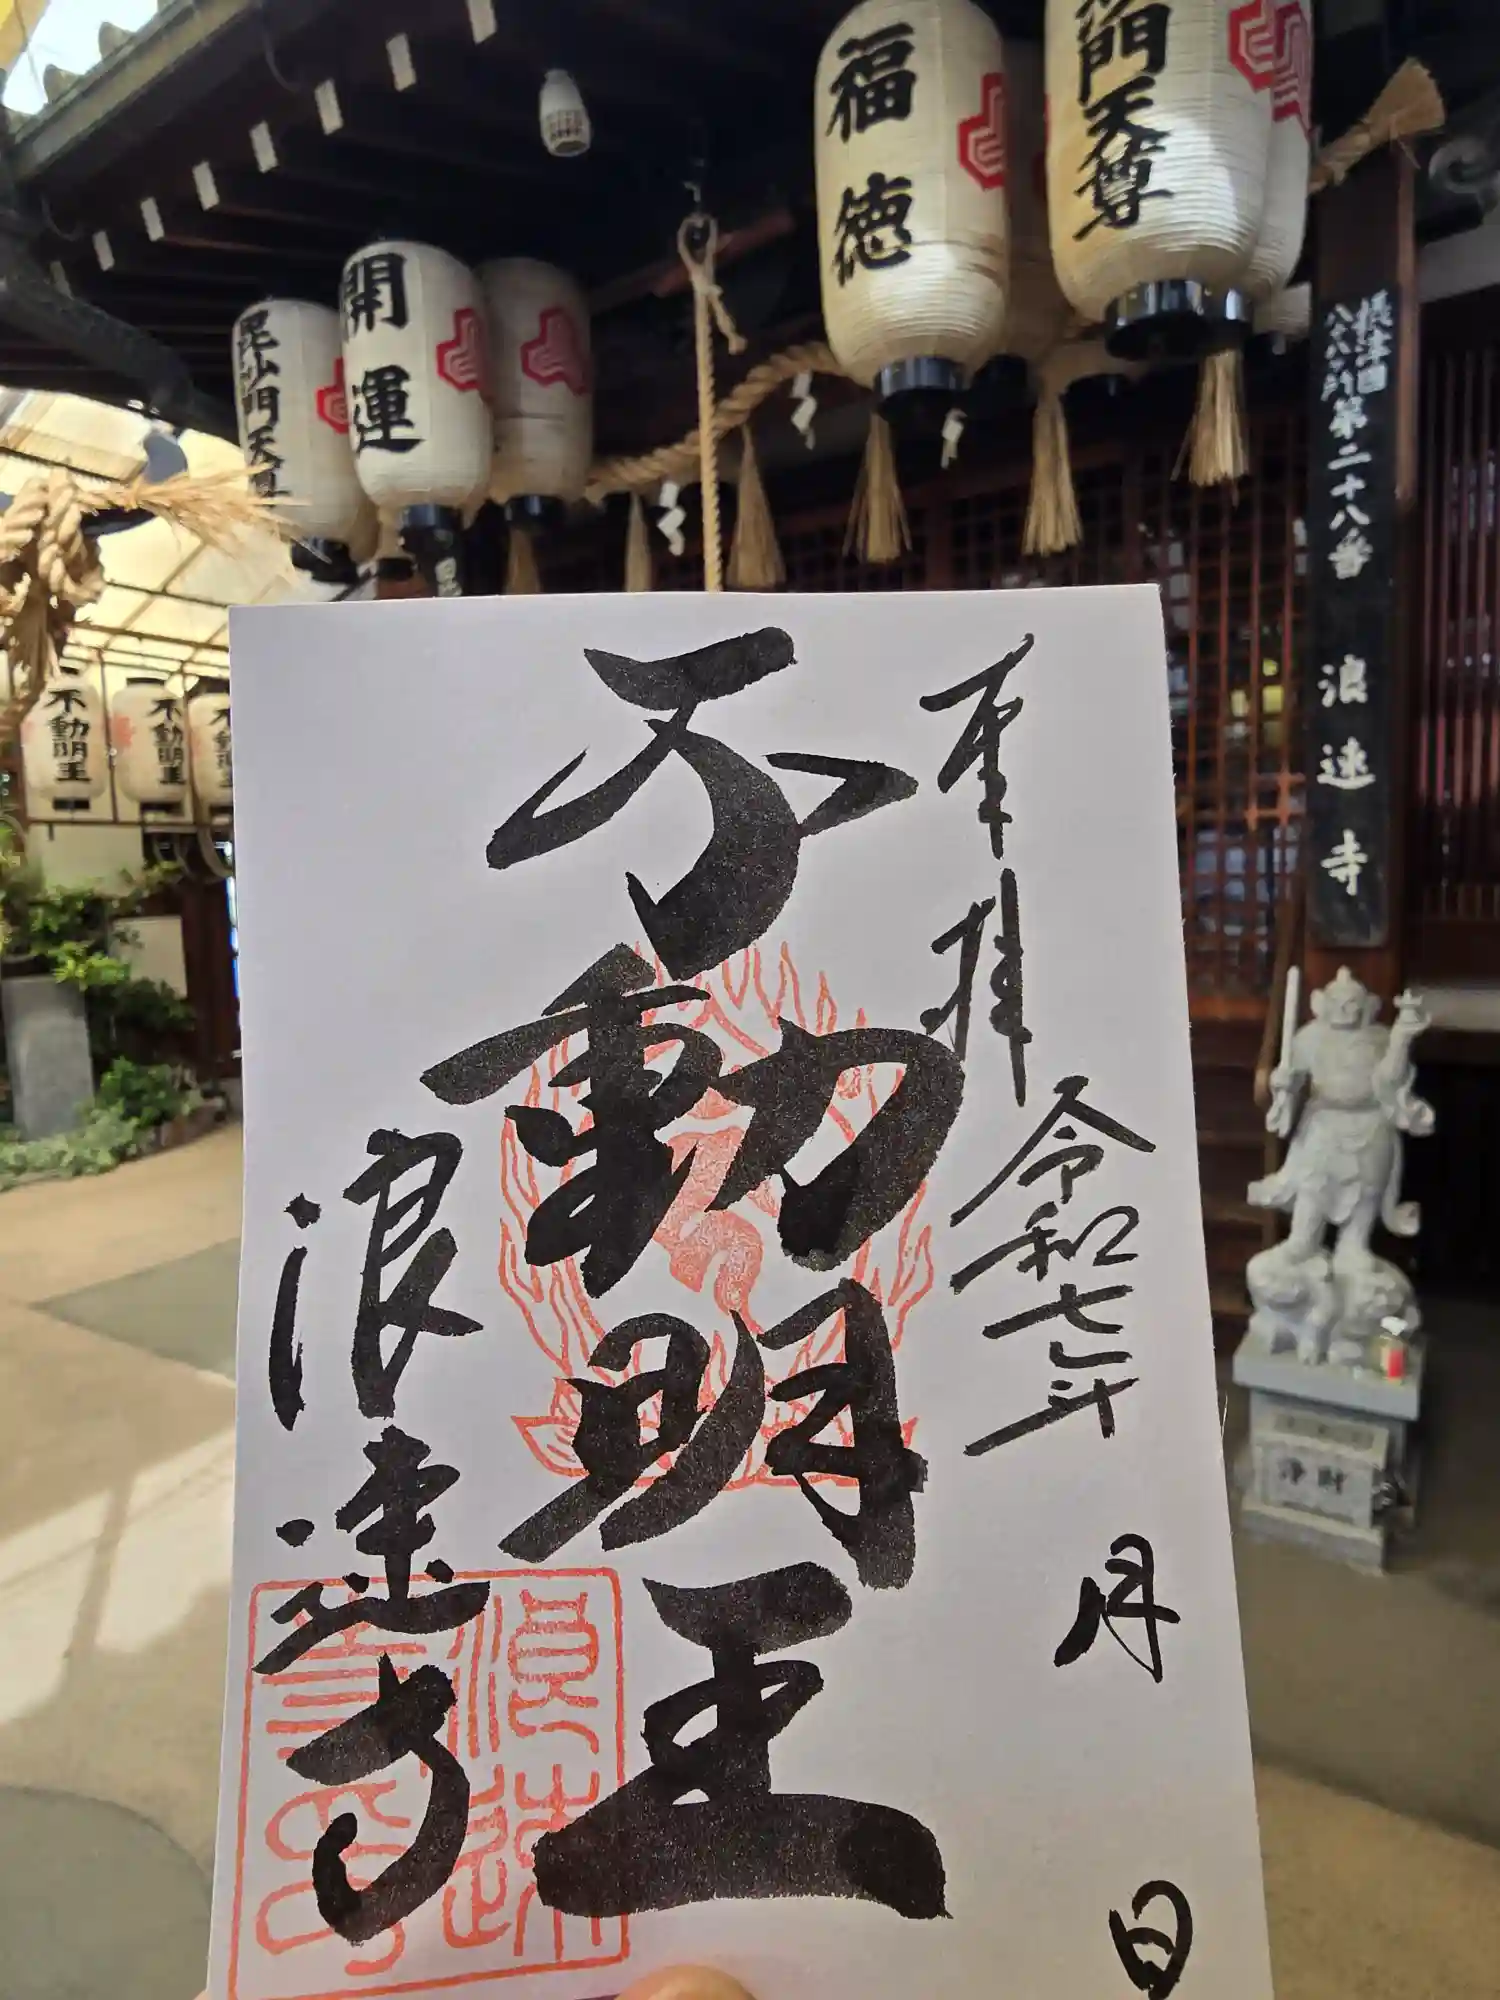 福徳
門天尊
開運
毘沙門天尊
摂津国
八十八ヶ所第二十八番 浪速寺
不動明王
不動明王
不
奉拝
令和七年
月
日
不動明王
浪速寺
浪速
寺印
浄財